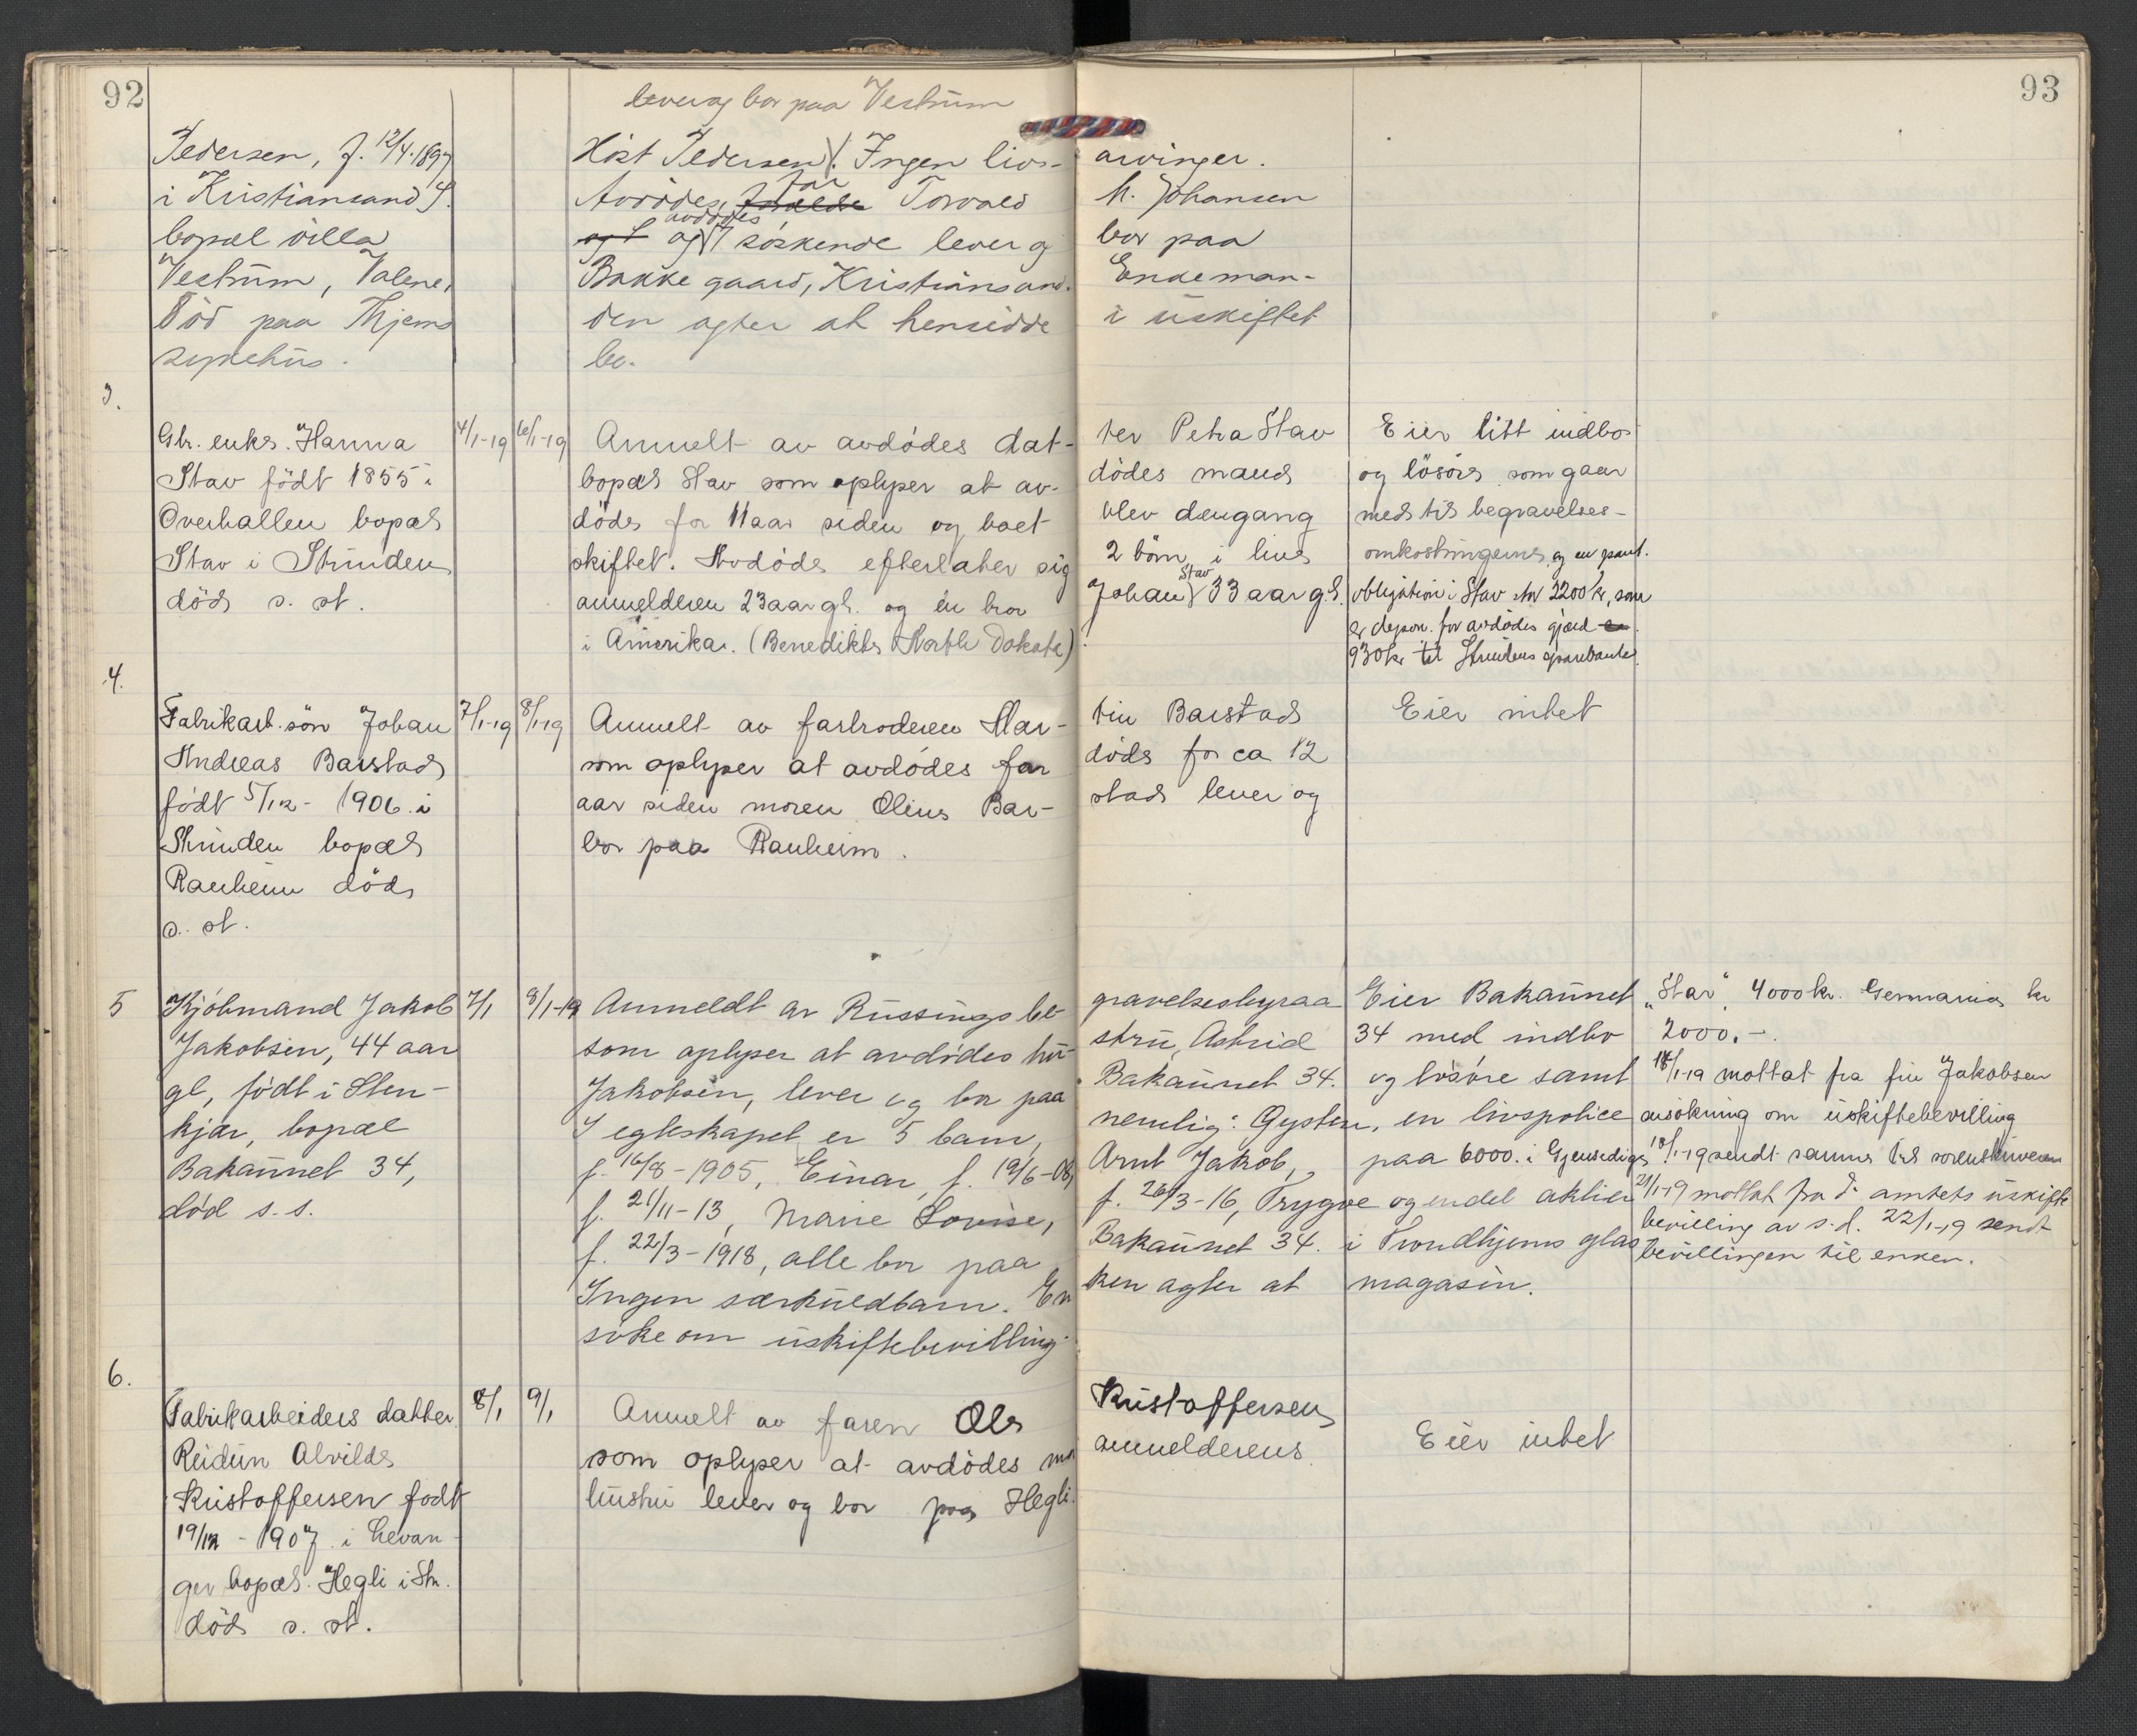 92
93
lever og bor paa Vestrum
Pedersen, f. 12/4.1897
i Kristiansand S.
bopæl villa
Vestrum, Valene,
Död paa Thjems
sykehus.
Höst Pedersen). Ingen livs- arvinger.
Avdödes far Torvald M. Johansen
og avdödes 7 söskende lever og bor paa
Bakke gaard, Kristiansand. Enkeman-
den agter at hensidde i uskiftet
bo.
3.
Gbr. enke. Hanna
Stav födt 1855 i
Overhallen bopæl
Stav i Strinden
död s. st.
4/1-19
6/1-19
Anmelt av avdödes dat- ter Petra Stav
bopæl Stav som oplyser at av- dödes mand
döde for 11 aar siden og boet blev dengang
skiftet. Avdöde efterlater sig 2 börn i live
anmelderen 23 aar gl. og en bror Johan Stav 33 aar gl.
i Amerika. (Benedikte North Dakota)
Eier litt indbo
og lösöre som gaar
med til begravelses-
omkostningerne og en pant.
obligation i Stav stor 2200 kr, som
er depon. for avdödes gjæld
930 kr til Strindens sparebank
4.
Fabrikarb. sön Johan
Andreas Barstad
födt 5/12 - 1906 i
Strinden bopæl
Ranheim död
s. st.
7/1-19
8/1-19
Anmelt av farbroderen Mar- tin Barstad
som oplyser at avdödes far döde for ca 12
aar siden moren Oline Bar- stad lever og
bor paa Ranheim.
Eier intet
5
Kjöbmand Jakob
Jakobsen, 44 aar
gl, födt i Sten-
kjær, bopæl
Bakaunet 34,
död s.s.
7/1
8/1-19
Anmeldt av Russings be- gravelsesbyraa
som oplyser at avdödes hu- stru, Astrid
Jakobsen, lever og bor paa Bakaunet 34.
I egteskapet er 5 barn, nemlig: Gysten,
f. 16/8-1905, Einar, f. 19/6-08, Arnt Jakob,
f. 21/11-13, Marie Lovise, f. 26/3-16, Trygve
f. 22/3-1918, alle bor paa Bakaunet 34.
Ingen særkuldbarn. En ken agter at
söke om uskiftebevilling.
Eier Bakaunet
34 med indbo
og lösöre samt
en livspolice
paa 6000. i Gjensidige,
og endel aktier
i Trondhjems glas
magasin.
"Star". 4000 kr. Germania kr
2000.-
18/1-19 mottat fra fru Jakobsen
ansökning om uskiftebevilling
18/1-19 sendt samme til sorenskriveren
21/1-19 mottat fra d. amtets uskifte
bevilling av s.d. 22/1-19 sendt
bevillingen til enken.
6.
Fabrikarbeiders datter
Reidun Alvilde
Kristoffersen födt
19/12 - 1907 i Levan-
ger bopæl Hegli i Str.
död s. st.
8/1
9/1
Anmelt av faren Ole Kristoffersen
som oplyser at avdödes mor anmelderens
hustru lever og bor paa Hegli.
Eier intet